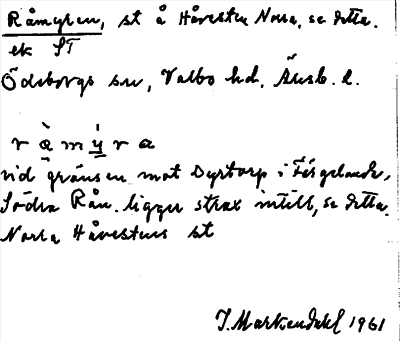 Råmyren, st å Håvesten Norra, se detta.
ek ST
Ödeborgs sn, Valbo hd, Älvsb. l.
r à m ý r a
vid gränsen mot Dyrtorp i Färgelanda,
Södra Rån. ligger strax intill, se detta.
Norra Håvestens st
J. Markendahl 1961